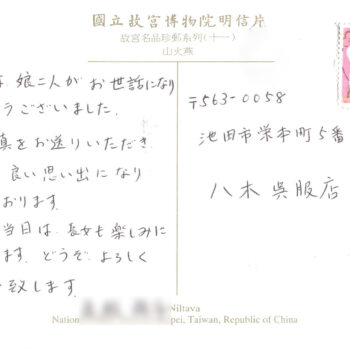 國立故宮博物院明信片
故宮名品珍郵系列(十一)
山火燕
娘二人がお世話になり
うございました.
真をお送りいただき
良い思い出になり
おります.
当日は、長女も楽しみに
ます. どうぞ よろしく
致します.
〒563-0058
池田市栄本町5番
八木 呉服店
Niltava
Nation
pei, Taiwan, Republic of China